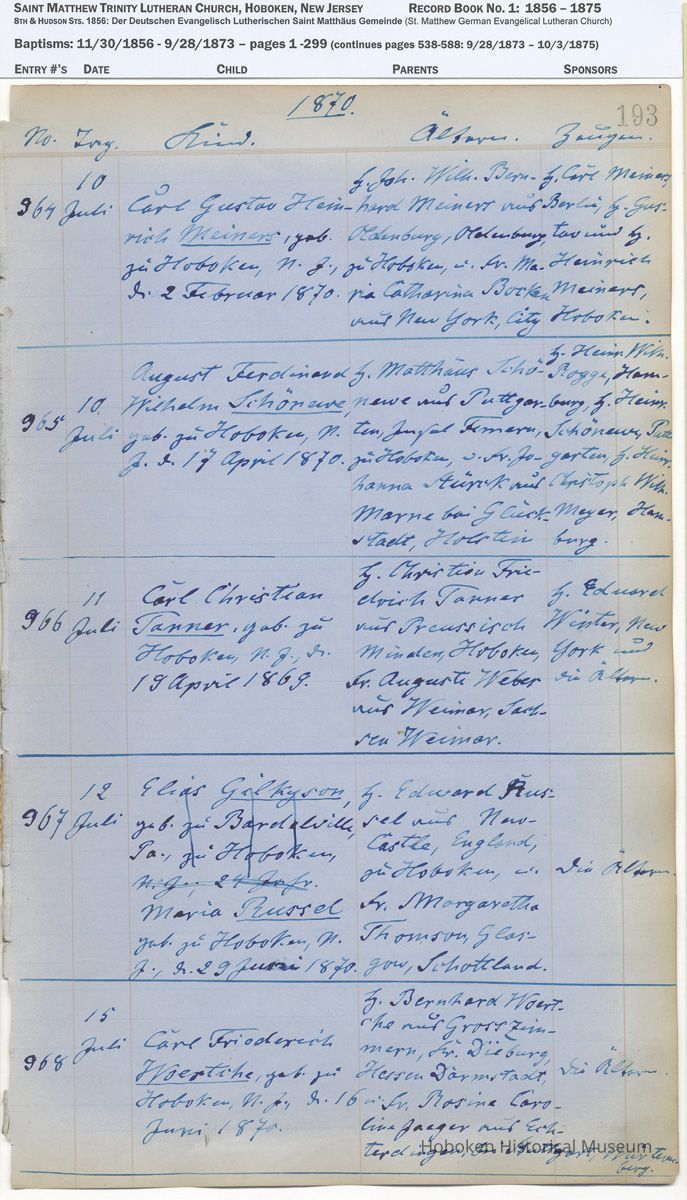 SAINT MATTHEW TRINITY LUTHERAN CHURCH, HOBOKEN, NEW JERSEY RECORD BOOK NO. 1: 1856 – 1875
8TH & HUDSON STS. 1856: Der Deutschen Evangelisch Lutherischen Saint Matthäus Gemeinde (St. Matthew German Evangelical Lutheran Church)
Baptisms: 11/30/1856 - 9/28/1873 – pages 1 -299 (continues pages 538-588: 9/28/1873 – 10/3/1875)
ENTRY #'S DATE CHILD PARENTS SPONSORS
1870.
193
No. Tag. Kind. Ältern. Zeugen.
964
10
Juli
Carl Gustav Hein-
rich Meiners, geb.
zu Hoboken, N. J.,
d. 2 Februar 1870.
H. Joh. Wilh. Bern-
hard Meiners aus
Oldenburg, Oldenburg,
zu Hoboken, u. Fr. Ma-
ria Catharina Bocken
aus New York, City
H. Carl Meiners,
Berlin, H. Gus-
tav und H.
Heinrich
Meiners,
Hoboken.
965
10.
Juli
August Ferdinand
Wilhelm Schönewe
geb. zu Hoboken, N.
J. d. 17 April 1870.
H. Matthäus Schö-
newe aus Puttgar-
ten, Insel Femern,
zu Hoboken, u. Fr. Jo-
hanna Stürck aus
Marne bei Glück-
stadt, Holstein
H. Heinr. Wilh.
Rogge, Ham-
burg, H. Heinr.
Schönewe, Putt-
garten, H. Heinr.
Christoph Wilh.
Meyer, Ham-
burg.
966
11
Juli
Carl Christian
Tanner, geb. zu
Hoboken, N. J., d.
19 April 1869.
H. Christian Frie-
drich Tanner
aus Preussisch
Minden, Hoboken,
Fr. Auguste Weber
aus Weimar, Sach-
sen Weimar.
H. Eduard
Winter, New
York und
die Ältern.
967
12
Juli
Elias Gilkyson,
geb. zu Bardalville,
Pa., zu Hoboken,
N. J., 24 Jahr.
Maria Russel
geb. zu Hoboken, N.
J., d. 29 Juni 1870.
H. Edward Rus-
sel aus New-
Castle, England,
zu Hoboken, u.
Fr. Margaretha
Thomson, Glas-
gow, Schottland.
Die Ältern.
968
15
Juli
Carl Friederich
Woertche, geb. zu
Hoboken, N. J., d. 16
Juni 1870.
H. Bernhard Woert-
che aus Grosszim-
mern, Kr. Dieburg,
Hessen Darmstadt,
u. Fr. Rosina Caro-
lina Jaeger aus Ech-
terdingen, Stuttgart, Würtem-
berg.
Die Ältern.
Hoboken Historical Museum